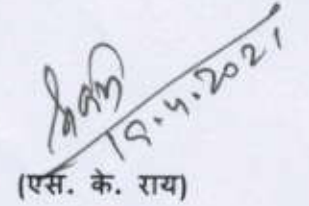 19.4.2021
(एस. के. राय)